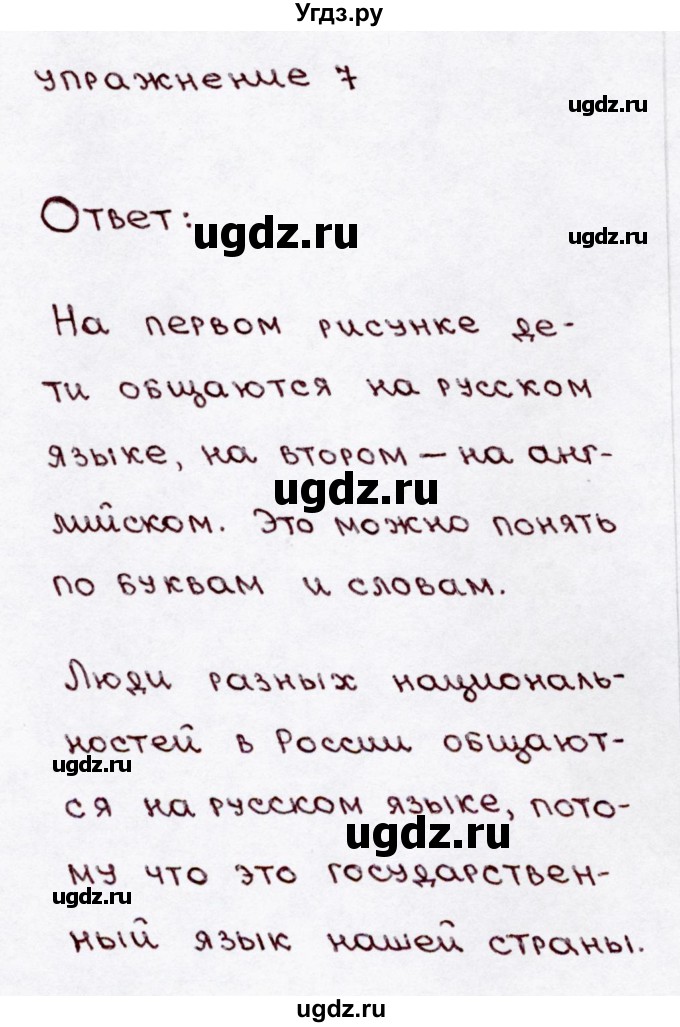 Угдз.ру
упражнение 7
ugdz.ru
Ответ:
ugdz.ru
ugdz.ru
На первом рисунке де-
ти общаются на русском
языке, на втором – на анг-
ugdz.ru
лийском. Это можно понять
по буквам и словам.
Люди разных националь-
ностей в России общают-
ugdz.ru
ся на русском языке, пото-
ugdz.ru
му что это государствен-
ugdz.ru
ный язык нашей страны.
ugdz.ru